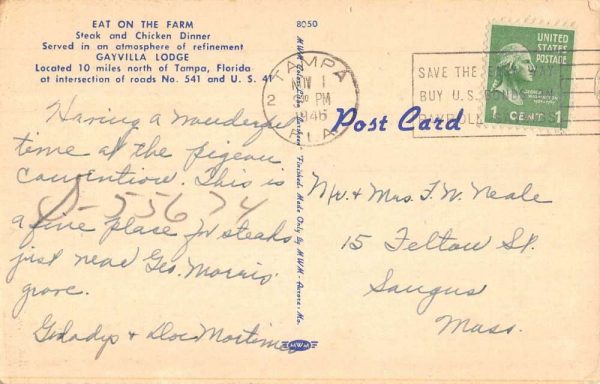 EAT ON THE FARM
Steak and Chicken Dinner
Served in an atmosphere of refinement
GAYVILLA LODGE
Located 10 miles north of Tampa, Florida
at intersection of roads No. 541 and U. S. 41
8050
TAMPA
NOV 1
2 PM
1946
FLA
SAVE THE
BUY U.S.
PAYROLL
UNITED
STATES
POSTAGE
1 CENT 1
Post Card
Having a wonderful
time at the pigeon
convention. This is
S-55674
a fine place for steaks
just near Geo. Morris'
grove.
Gladys + Doc Mortimer
Mr. + Mrs. F. W. Neale
15 Felton St.
Saugus
Mass.
Finished. Made Only By MWM - Aurora, Mo.
MWM